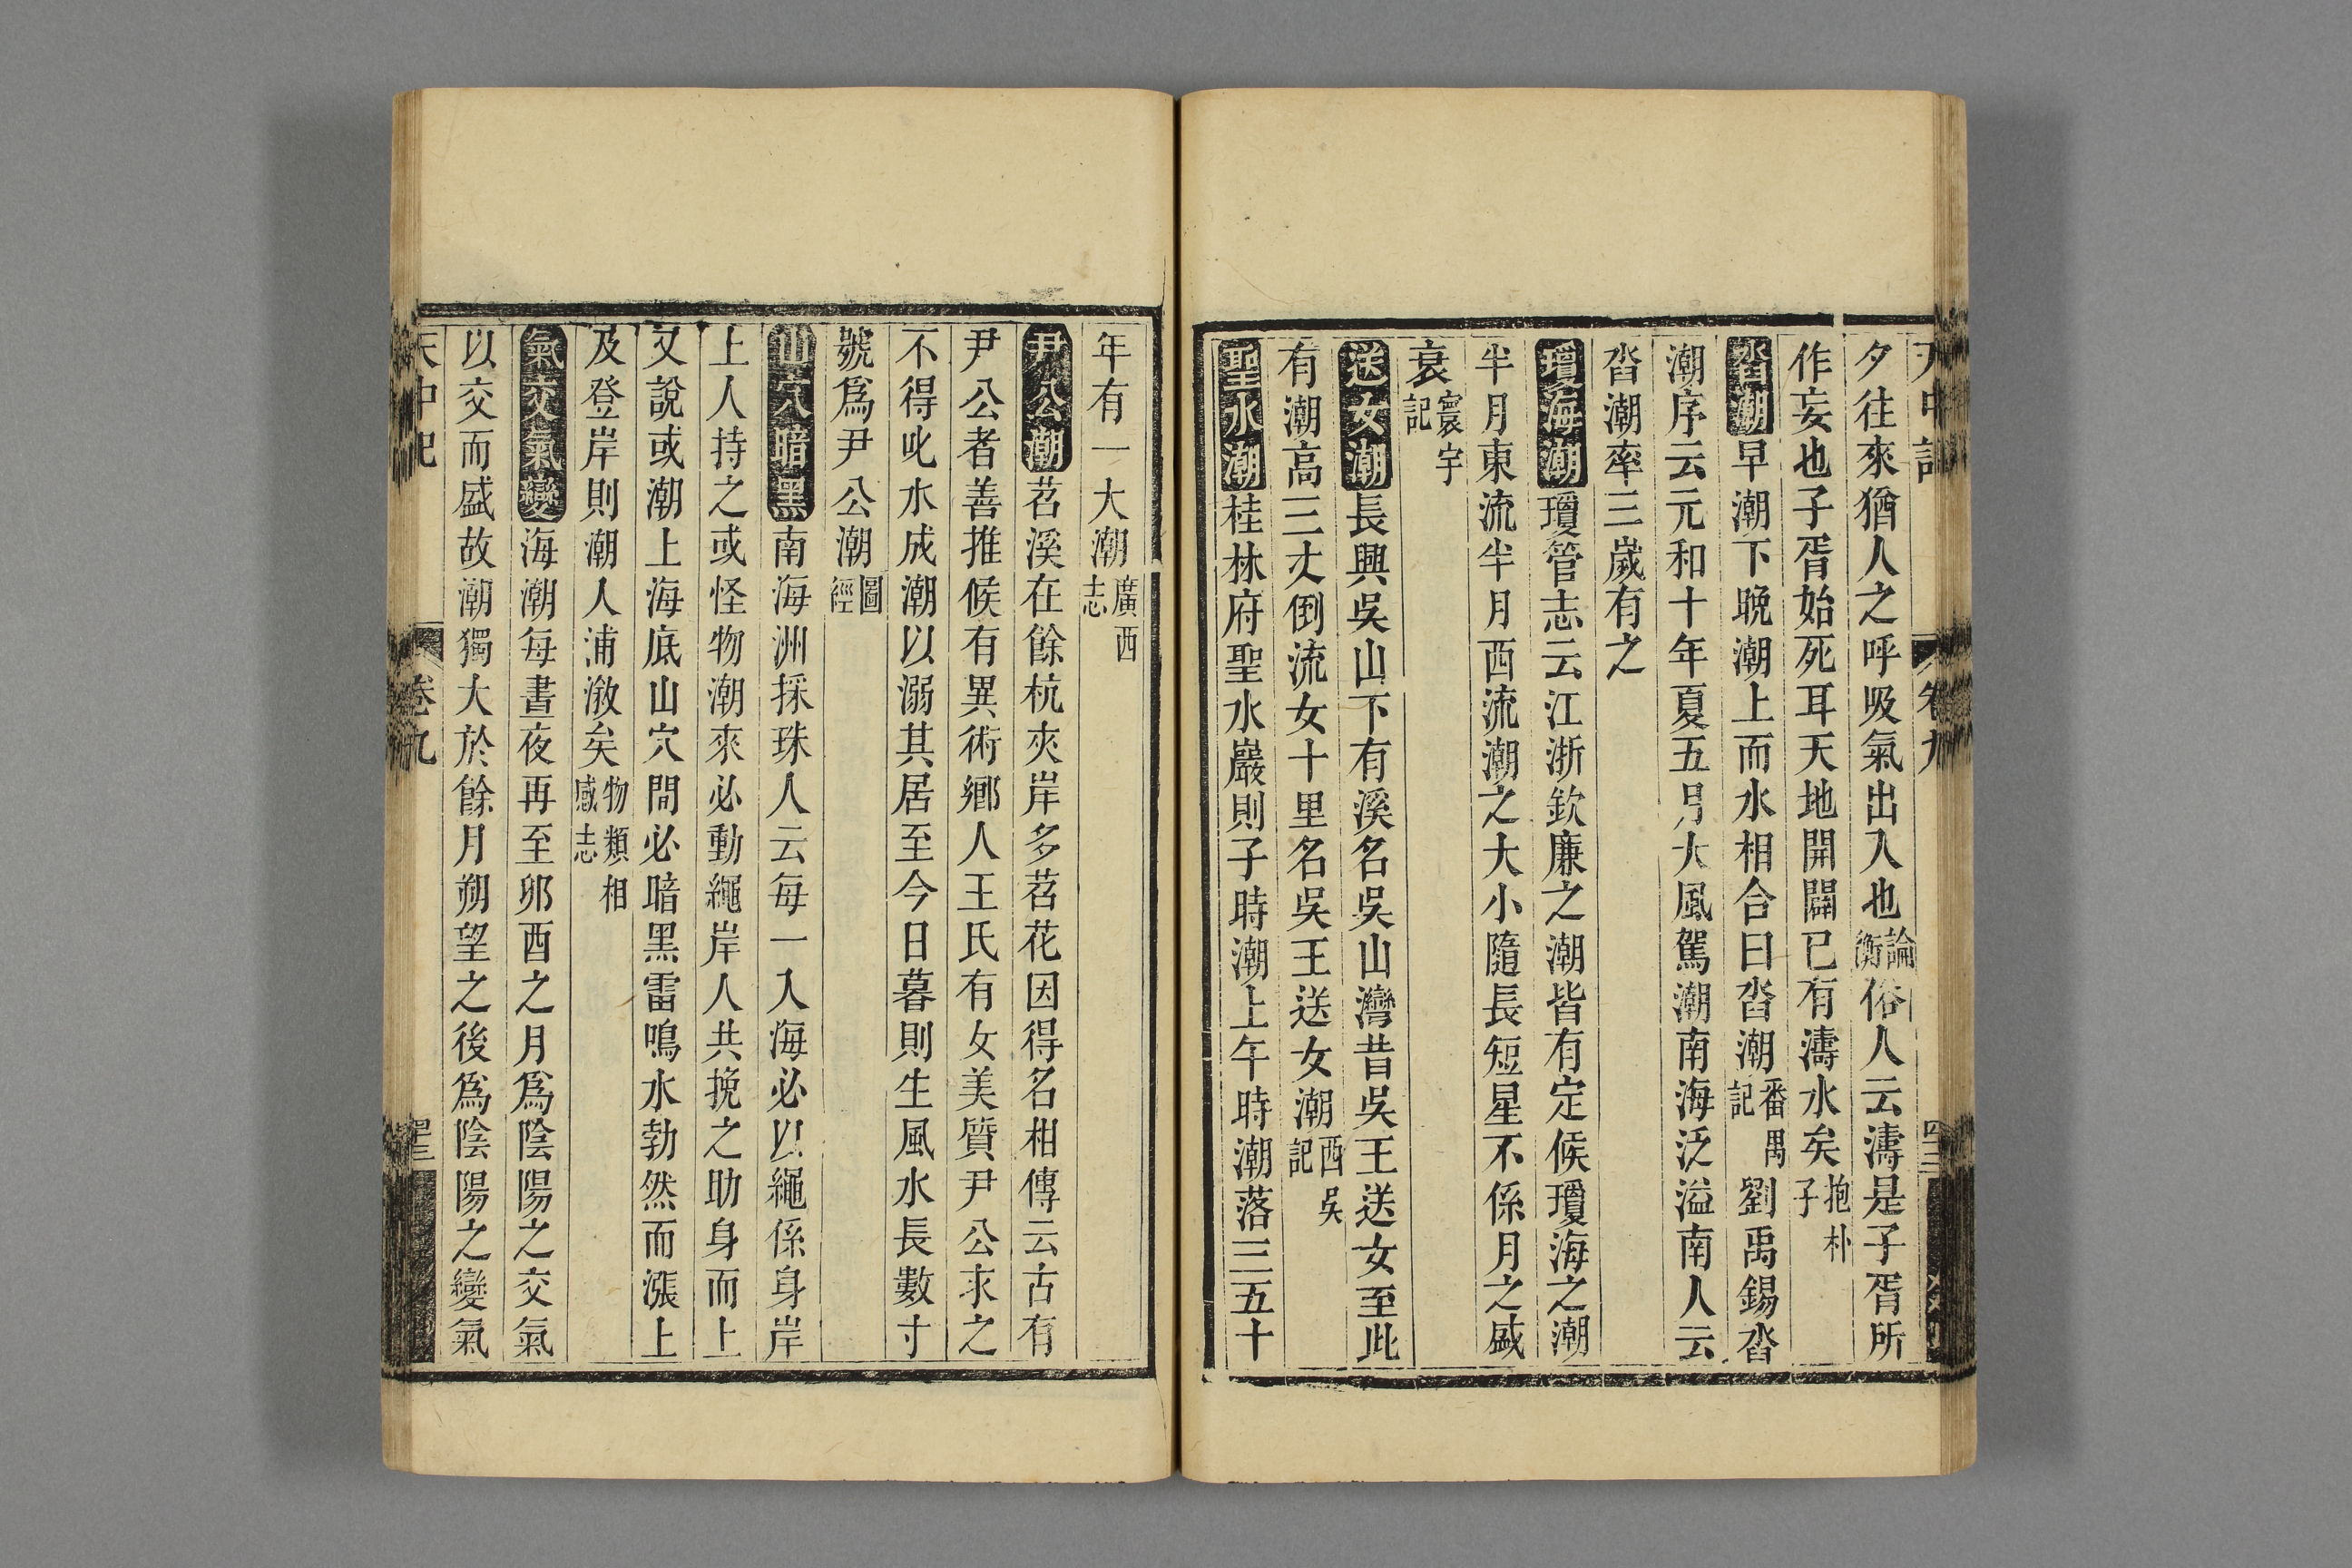 天中記 卷九 四十二
夕往來猶人之呼吸氣出入也論衡俗人云濤是子胥所
作妄也子胥始死耳天地開闢已有濤水矣抱朴子
沓潮早潮下晚潮上而水相合曰沓潮番禺記劉禹錫沓
潮序云元和十年夏五月大風駕潮南海泛溢南人云
沓潮率三歲有之
瓊海潮瓊管志云江浙欽廉之潮皆有定候瓊海之潮
半月東流半月西流潮之大小隨長短星不係月之盛
衰寰宇記
送女潮長興吳山下有溪名吳山灣昔吳王送女至此
有潮高三丈倒流女十里名吳王送女潮西吳記
聖水潮桂林府聖水巖則子時潮上午時潮落三五十
年有一大潮廣西志
尹公潮苕溪在餘杭夾岸多苕花因得名相傳云古有
尹公者善推候有異術鄉人王氏有女美質尹公求之
不得叱水成潮以溺其居至今日暮則生風水長數寸
號爲尹公潮圖經
山穴暗黑南海洲採珠人云每一入海必以繩係身岸
上人持之或怪物潮來必動繩岸人共挽之助身而上
又說或潮上海底山穴間必暗黑雷鳴水勃然而漲上
及登岸則潮人浦漵矣物類相感志
氣交氣變海潮每晝夜再至卯酉之月爲陰陽之交氣
以交而盛故潮獨大於餘月朔望之後爲陰陽之變氣
天中記 卷九